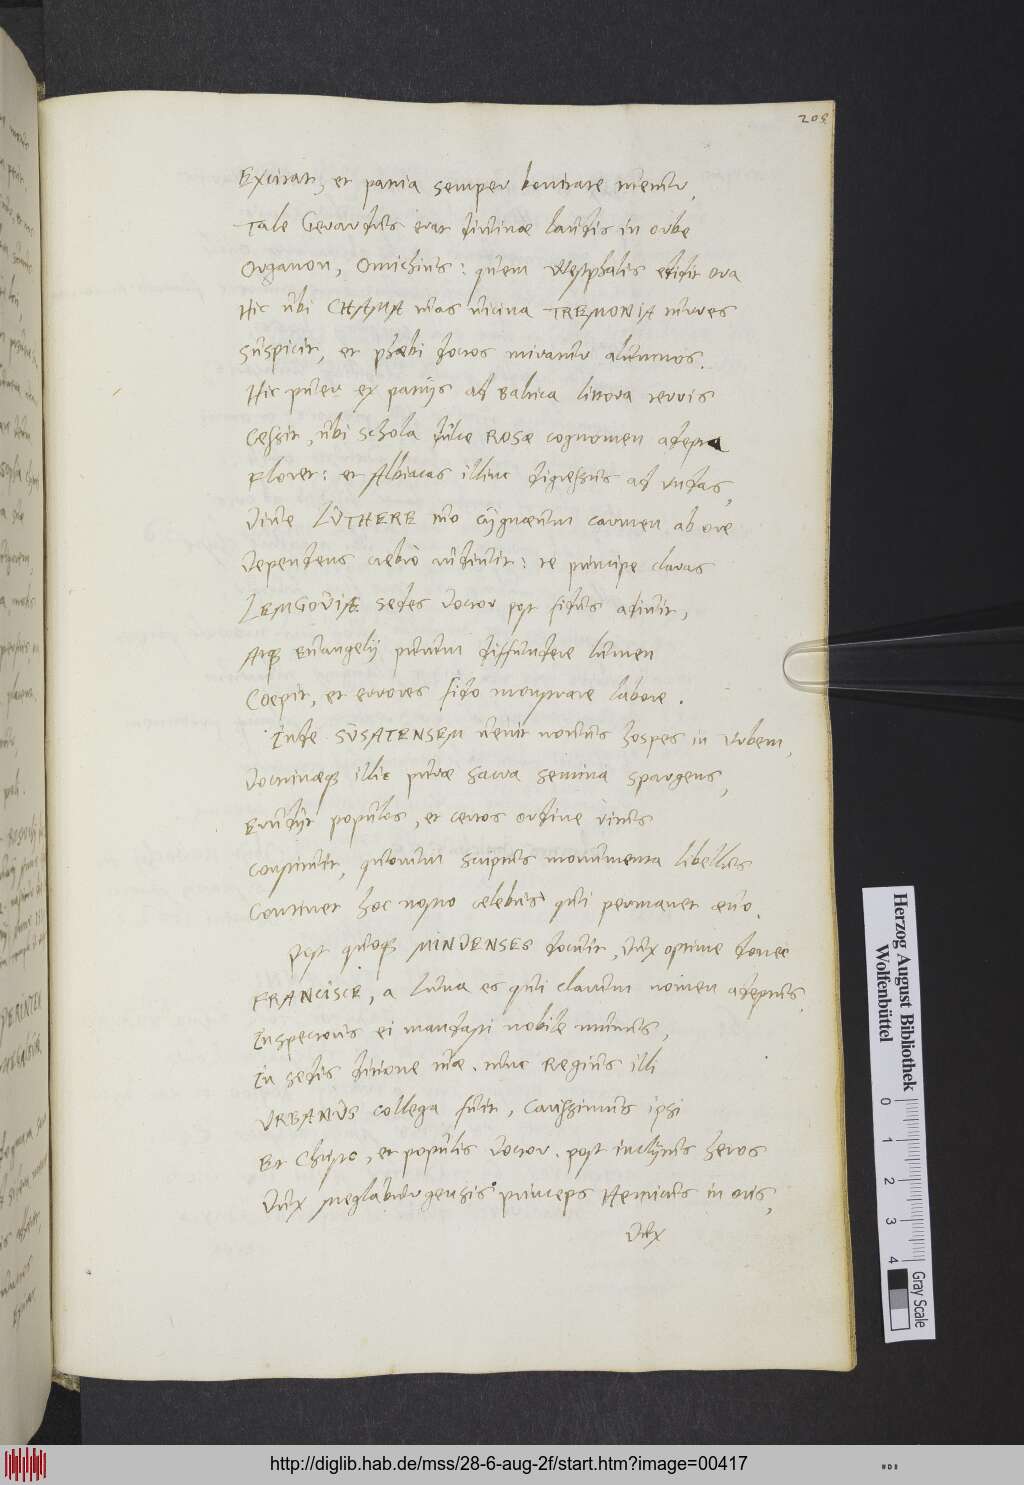 208
Excitat, et patria semper bonitate tuetur,
Tale Gerardus erat divinae laudis in orbe
Organon, Omichius: quem Westphalis edidit ora
Hic ubi CHAMA tuas vicina TREMONIA turres
Suspicit, et phoebi doctos miratur alumnos.
Hic puer ex patrijs ad Baltica littora terris
Cessit, ubi schola dulce ROSAE cognomen adepta
Floret: et Albiacas illinc digressus ad undas,
Dive LUTHERE tuo cygnaeum carmen ab ore
Dependens crebrò audivit: te principe claras
LEMGOVIAE sedes doctor post fidus adivit,
Atque Euangelij purum diffundere lumen
Coepit, et errores fido monstrare labore.
Inde SUSATENSEM venit novus hospes in Urbem,
Doctrinaeque illic purae sacra semina spargens,
Erudijt populos, et certos ordine ritus
Constituit, quorum scriptus monumenta libellus
Continet hoc nostro celebris qui permanet aevo.
Post quoque MINDENSES docuit, Dux optime donec
FRANCISCE, a Luna es qui clarum nomen adeptus,
Inspectoris ei mandasti nobile munus,
In sedis ditione tuae. tunc Regius illi
URBANUS collega fuit, carissimus ipsi
Et Christo, et populis doctor. post inclytus heros
Dux Meglaburgensis princeps Henricus in oris,
Dux
Herzog August Bibliothek
Wolfenbüttel
0 1 2 3 4
Gray Scale
http://diglib.hab.de/mss/28-6-aug-2f/start.htm?image=00417